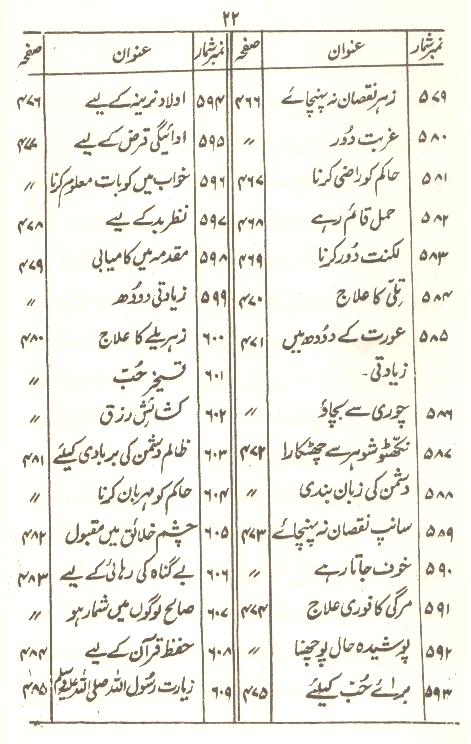 ۲۲
نمبرشمار عنوان صفحہ
۵۷۹ زہر نقصان نہ پہنچائے ۴۶۶
۵۸۰ غربت دُور 〃
۵۸۱ حاکم کو راضی کرنا ۴۶۷
۵۸۲ حمل قائم رہے ۴۶۸
۵۸۳ لکنت دُور کرنا ۴۶۹
۵۸۴ تِلّی کا علاج ۴۷۰
۵۸۵ عورت کے دودھ میں ۴۷۱
زیادتی۔
۵۸۶ چوری سے بچاؤ 〃
۵۸۷ نکھٹو شوہر سے چھٹکارا ۴۷۲
۵۸۸ دشمن کی زبان بندی 〃
۵۸۹ سانپ نقصان نہ پہنچائے ۴۷۳
۵۹۰ خوف جاتا رہے 〃
۵۹۱ مرگی کا فوری علاج ۴۷۴
۵۹۲ پوشیدہ حال پوچھنا 〃
۵۹۳ برائے حُب کیلئے ۴۷۵
نمبرشمار عنوان صفحہ
۵۹۴ اولاد نرینہ کے لیے ۴۷۶
۵۹۵ ادائیگی قرض کے لیے ۴۷۷
۵۹۶ خواب میں کو بات معلوم کرنا 〃
۵۹۷ نظر بد کے لیے ۴۷۸
۵۹۸ مقدمہ میں کامیابی ۴۷۹
۵۹۹ زیادتی دودھ 〃
۶۰۰ زہریلے کا علاج ۴۸۰
۶۰۱ تسخیر حُب 〃
۶۰۲ کشائش رزق 〃
۶۰۳ ظالم دشمن کی بربادی کیلئے ۴۸۱
۶۰۴ حاکم کو مہربان کرنا 〃
۶۰۵ چشم خلائق میں مقبول ۴۸۲
۶۰۶ بے گناہ کی رہائی کے لیے ۴۸۳
۶۰۷ صالح لوگوں میں شمار ہو 〃
۶۰۸ حفظ قرآن کے لیے ۴۸۴
۶۰۹ زیارت رسُول اللہ صلی اللہ علیہ وسلم ۴۸۵